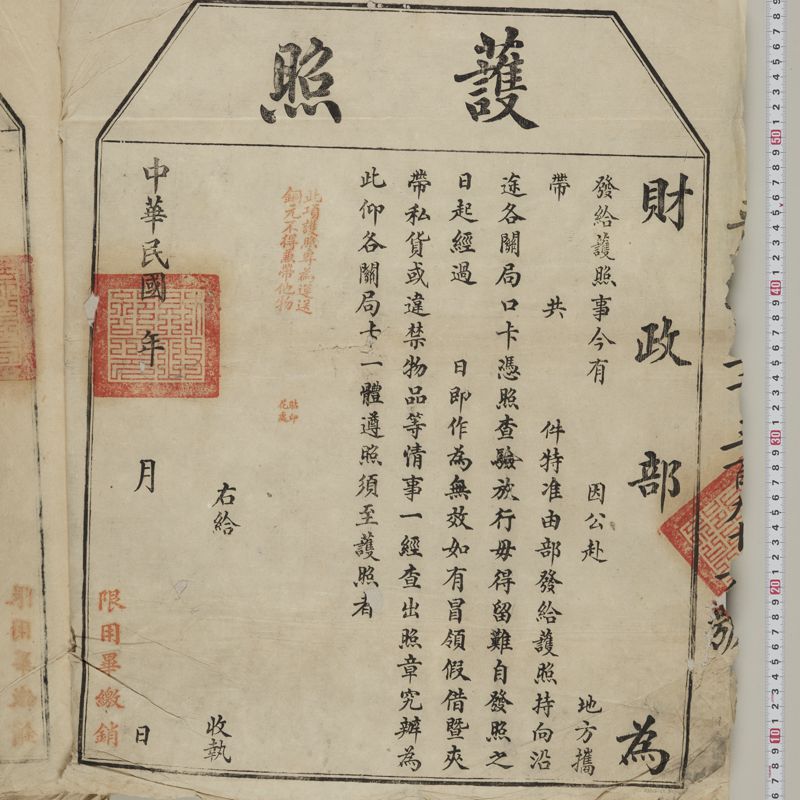 護照
財政部為
發給護照事今有 因公赴 地方攜
帶 共 件特准由部發給護照持向沿
途各關局口卡憑照查驗放行毋得留難自發照之
日起經過 日即作為無效如有冒領假借暨夾
帶私貨或違禁物品等情事一經查出照章究辦為
此仰各關局卡一體遵照須至護照者
此項護照專為運送
銅元不得兼帶他物
貼印
花處
右給 收執
中華民國 年 月 日
限用畢繳銷
號